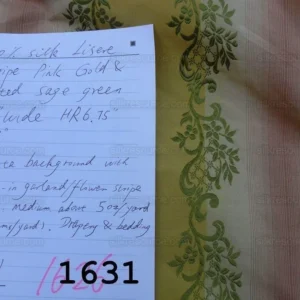 0% silk Lisere
ipe Pink Gold &
eed sage green
wide HR6.75"
"
te background with
-in garland/flower stripe
- medium above 5oz/yard
ms/yard). Drapery & bedding
1631